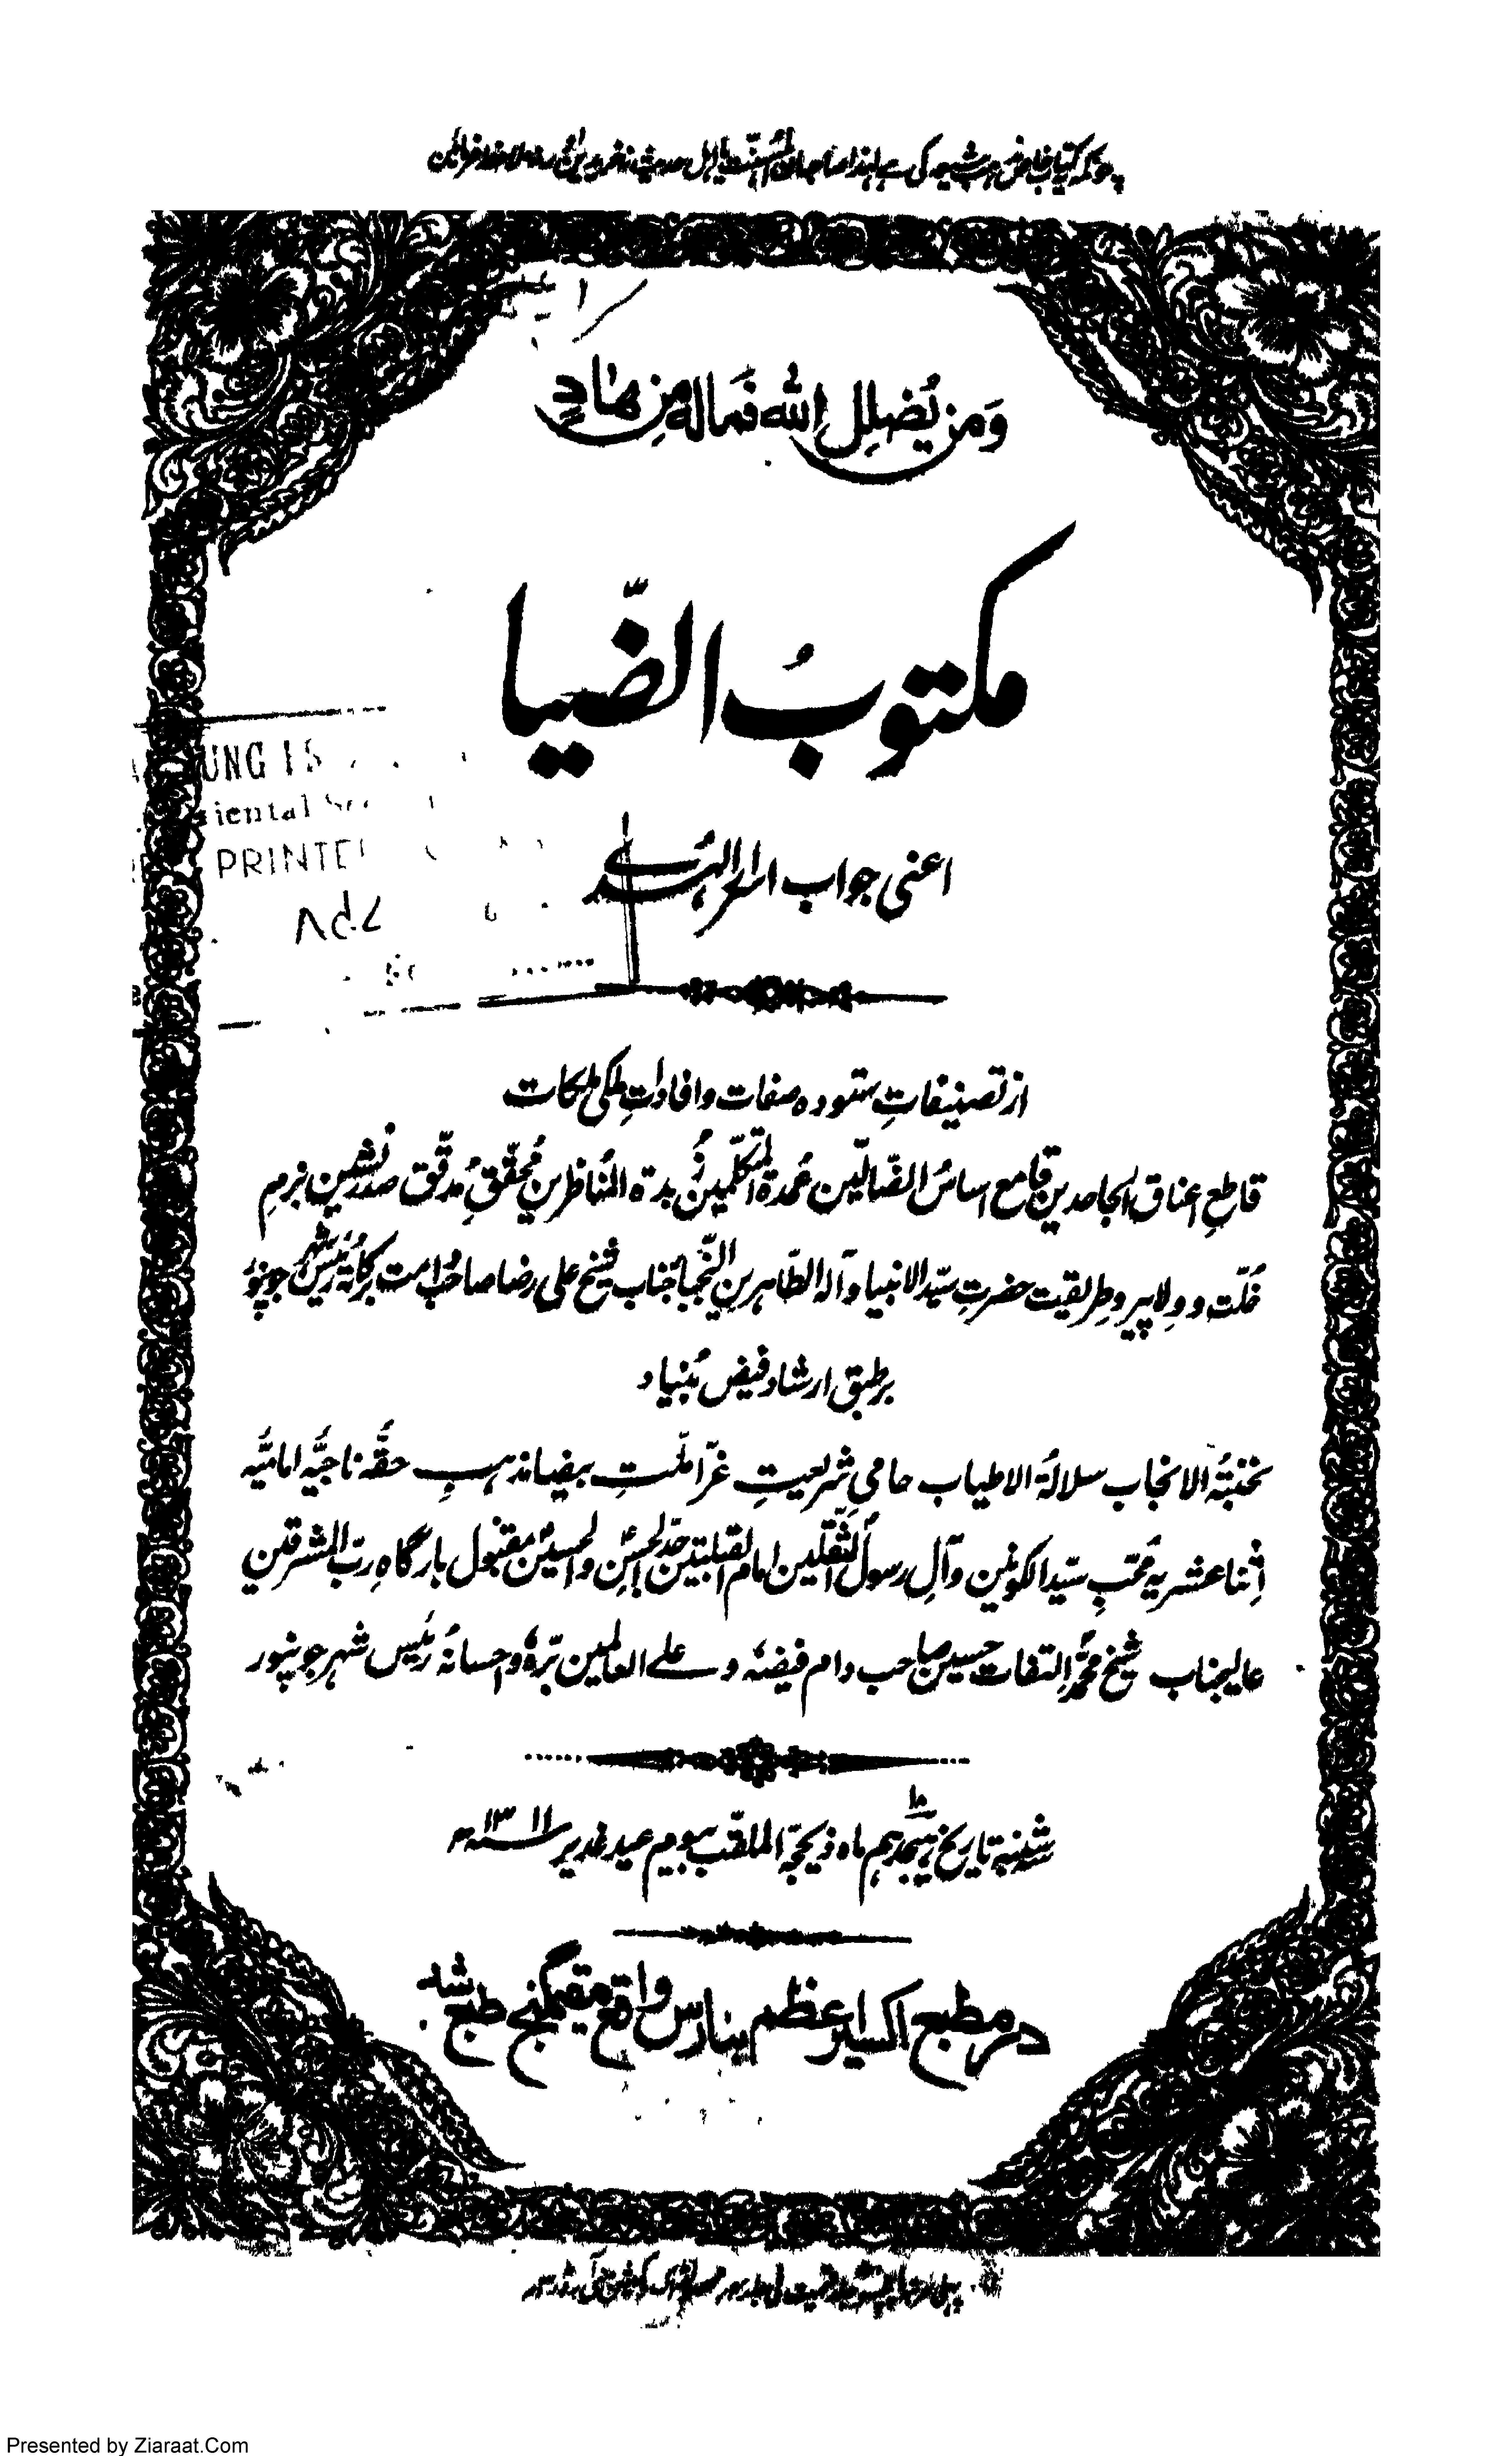 چونکہ کتاب خاص مذہب شیعہ کی ہے لہذا صاحبان اہلسنت یا اہل حدیث نہ خریدیں
وَمَن يُضلِلِ الله فَمالهُ مِن هادٍ
مکتوبُ الضّیا
UNG IS
iental
PRINTE
اعنی جواب المرالہدی
از تصنیفاتِ ستودہ صفات وافاداتِ ملکی ملکات
قاطعِ اعناق الجاحدین قامع اساسُ الضّالّین عُمدۃ المتکلّمین زُبدۃ المُناظرین مُحقّقِ مُدقّق صدر نشین بزمِ
خُلّت و وِلا پیروِ طریقیت حضرتِ سیّد الانبیا وآلہ الطّاہرین النُّجبا جناب شیخ علی رضا صاحب دامت برکاتہٗ رئیس شہر جونپور
برطبق ارشاد فیض بُنیاد
نخبتۂ الانجاب سلالۃ الاطیاب حامیِ شریعتِ غرّا ملّتِ بیضا مذہبِ حقّہ ناجیّہ امامیّہ
اِثنا عشریہ مُحبِّ سیّد الکونین وآلِ رسول الثّقلین امام القبلتین جدّ الحسن والحسین مقبول بارگاہِ ربّ المشرقین
عالیجناب شیخ محمّد التفات حسین صاحب دام فیضہٗ و علے العالمین برّہٗ واحسانہٗ رئیس شہر جونپور
شنبہ تاریخ ہیجدہم ۱۸ ماہ ذیحجّہ الملقب بیوم عید غدیر سنہ ۱۳۱۱ھ
در مطبع اکسیر اعظم بنارس واقع مقیمگنج طبع شد
Presented by Ziaraat.Com